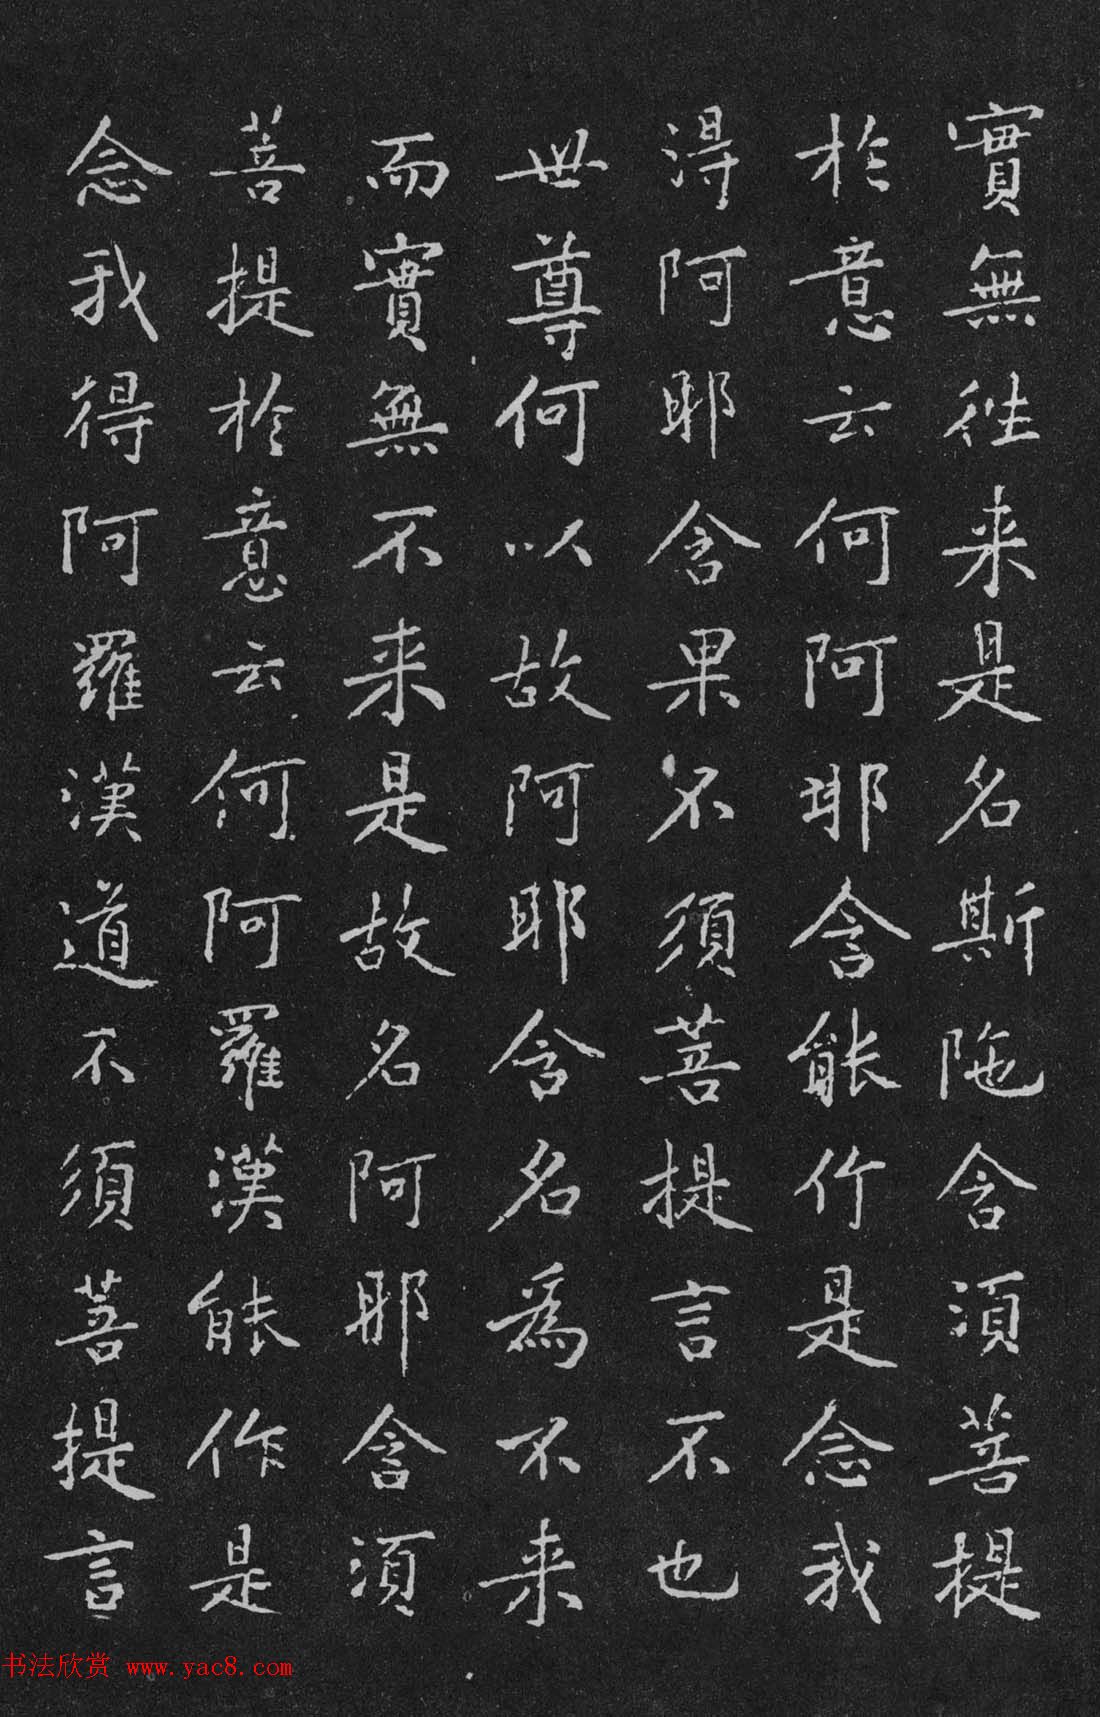 實無往来是名斯陁含須菩提
於意云何阿耶含能作是念我
得阿耶含果不須菩提言不也
世尊何以故阿耶含名為不来
而實無不来是故名阿耶含須
菩提於意云何阿羅漢能作是
念我得阿羅漢道不須菩提言
书法欣赏 www.yac8.com